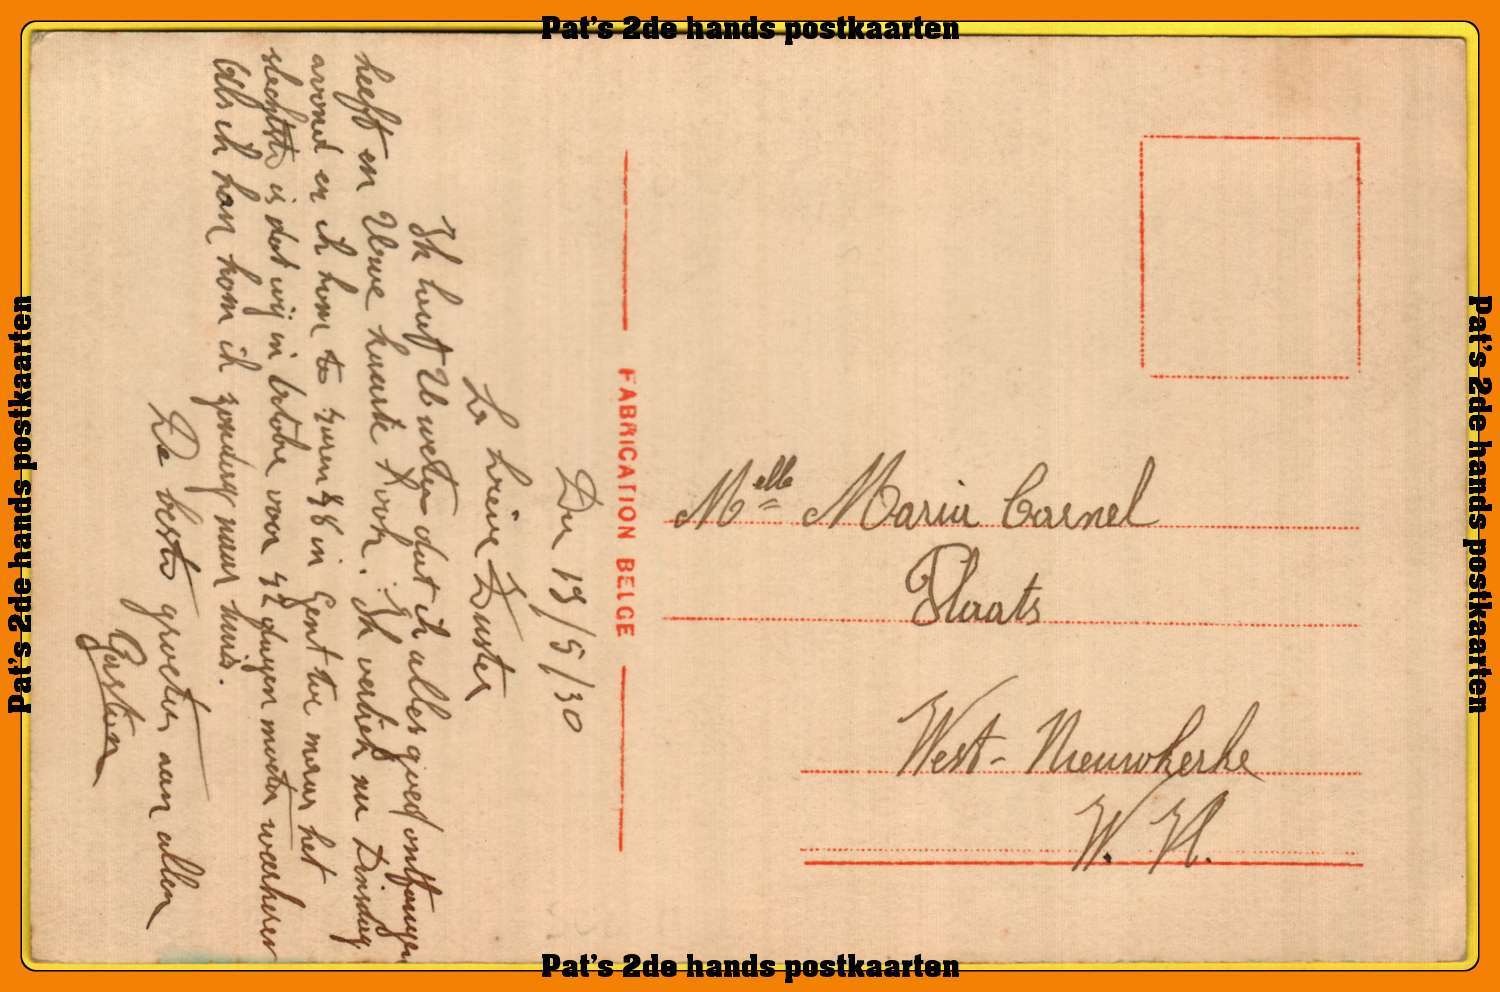 Pat's 2de hands postkaarten
Pat's 2de hands postkaarten
Du 19/5/30
Lieve Zuster
Ik laat U weten dat ik alles goed ontfangen
heeft en Uwe kaart ook. Ik vertrek nu Dinsdag
avond en ik kom te zuren in Gent toe maar het
slechtste is dat wij in voor dagen moeten weerkeren
Als ik kan kom ik zondag naar huis.
De beste groeten aan allen
Gaston
FABRICATION BELGE
Melle Maria Cornel
Plaats
West-Nieuwkerke
W. Vl.
Pat's 2de hands postkaarten
Pat's 2de hands postkaarten